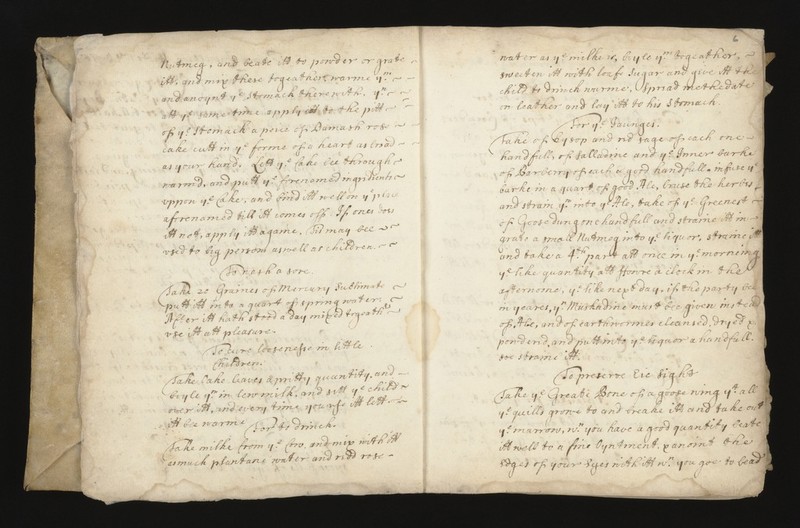 Nutmeg, and beate itt to powder or grate
itt, and mix these togeather, warme ym
and anoynt ye Stomach therewith. yn
att ye same time apply itt to the pitt
of ye Stomach a peice of Damask rose
Cake cutt in ye forme of a heart as broad
as your hand. Lett ye Cake bee through
warmd, and putt ye forenamed ingredients
uppon ye Cake, and bind itt well in ye place
aforenamed till itt comes off. If once doe
itt not, apply itt againe. This may bee
used to big persons as well as children.
To wash a sore.
Take 20 Graines of Mercury Sublimate
putt itt into a quart of spring water
After itt hath stood a day mixed togeather
use itt att pleasure.
To cure loosenesse in little
Children.
Take Oake leaves a pritty quantity, and
boyle ym in new milk, and sett ye child
over itt, and every time you use itt lett
itt be warme
For its drinck.
Take milke from ye Cow, and mix with itt
as much plantane water and redd rose
6
water as ye milke is, boyle ym togeather,
sweeten itt with loafe sugar and give itt the
child to drinck warme, spread methredate
on leather and lay itt to his stomach.
For ye Jaunges.
Take of Hysop and red sage of each one
handfull, of Salladine and ye Inner barke
of Barbery of each a good handfull. infuse ye
barke in a quart of good Ale, bruse the herbes
and strain ym into ye Ale, take of ye Greenest
of Goose dung one handfull and straine itt in
grate a small Nutmeg into ye liquor, straine itt
and take a 4th part att once in ye morneing
ye like quantity att fowre a clock in the
afternoone, ye like next day. if the party bee
in yeares, yn Muskadine must bee given instead
of Ale, and of earthwormes cleansed, dryed &
powderd, and putt into ye liquor a handfull.
soe straine itt.
To preserve Eie Sight
Take ye Greate Bone of a goose wing yt all
ye quills grow to and breake itt and take out
ye marrow, wn you have a good quantity beate
itt well to a fine oyntment, & anoint the
Edges of your Eyes with itt wn you goe to bead